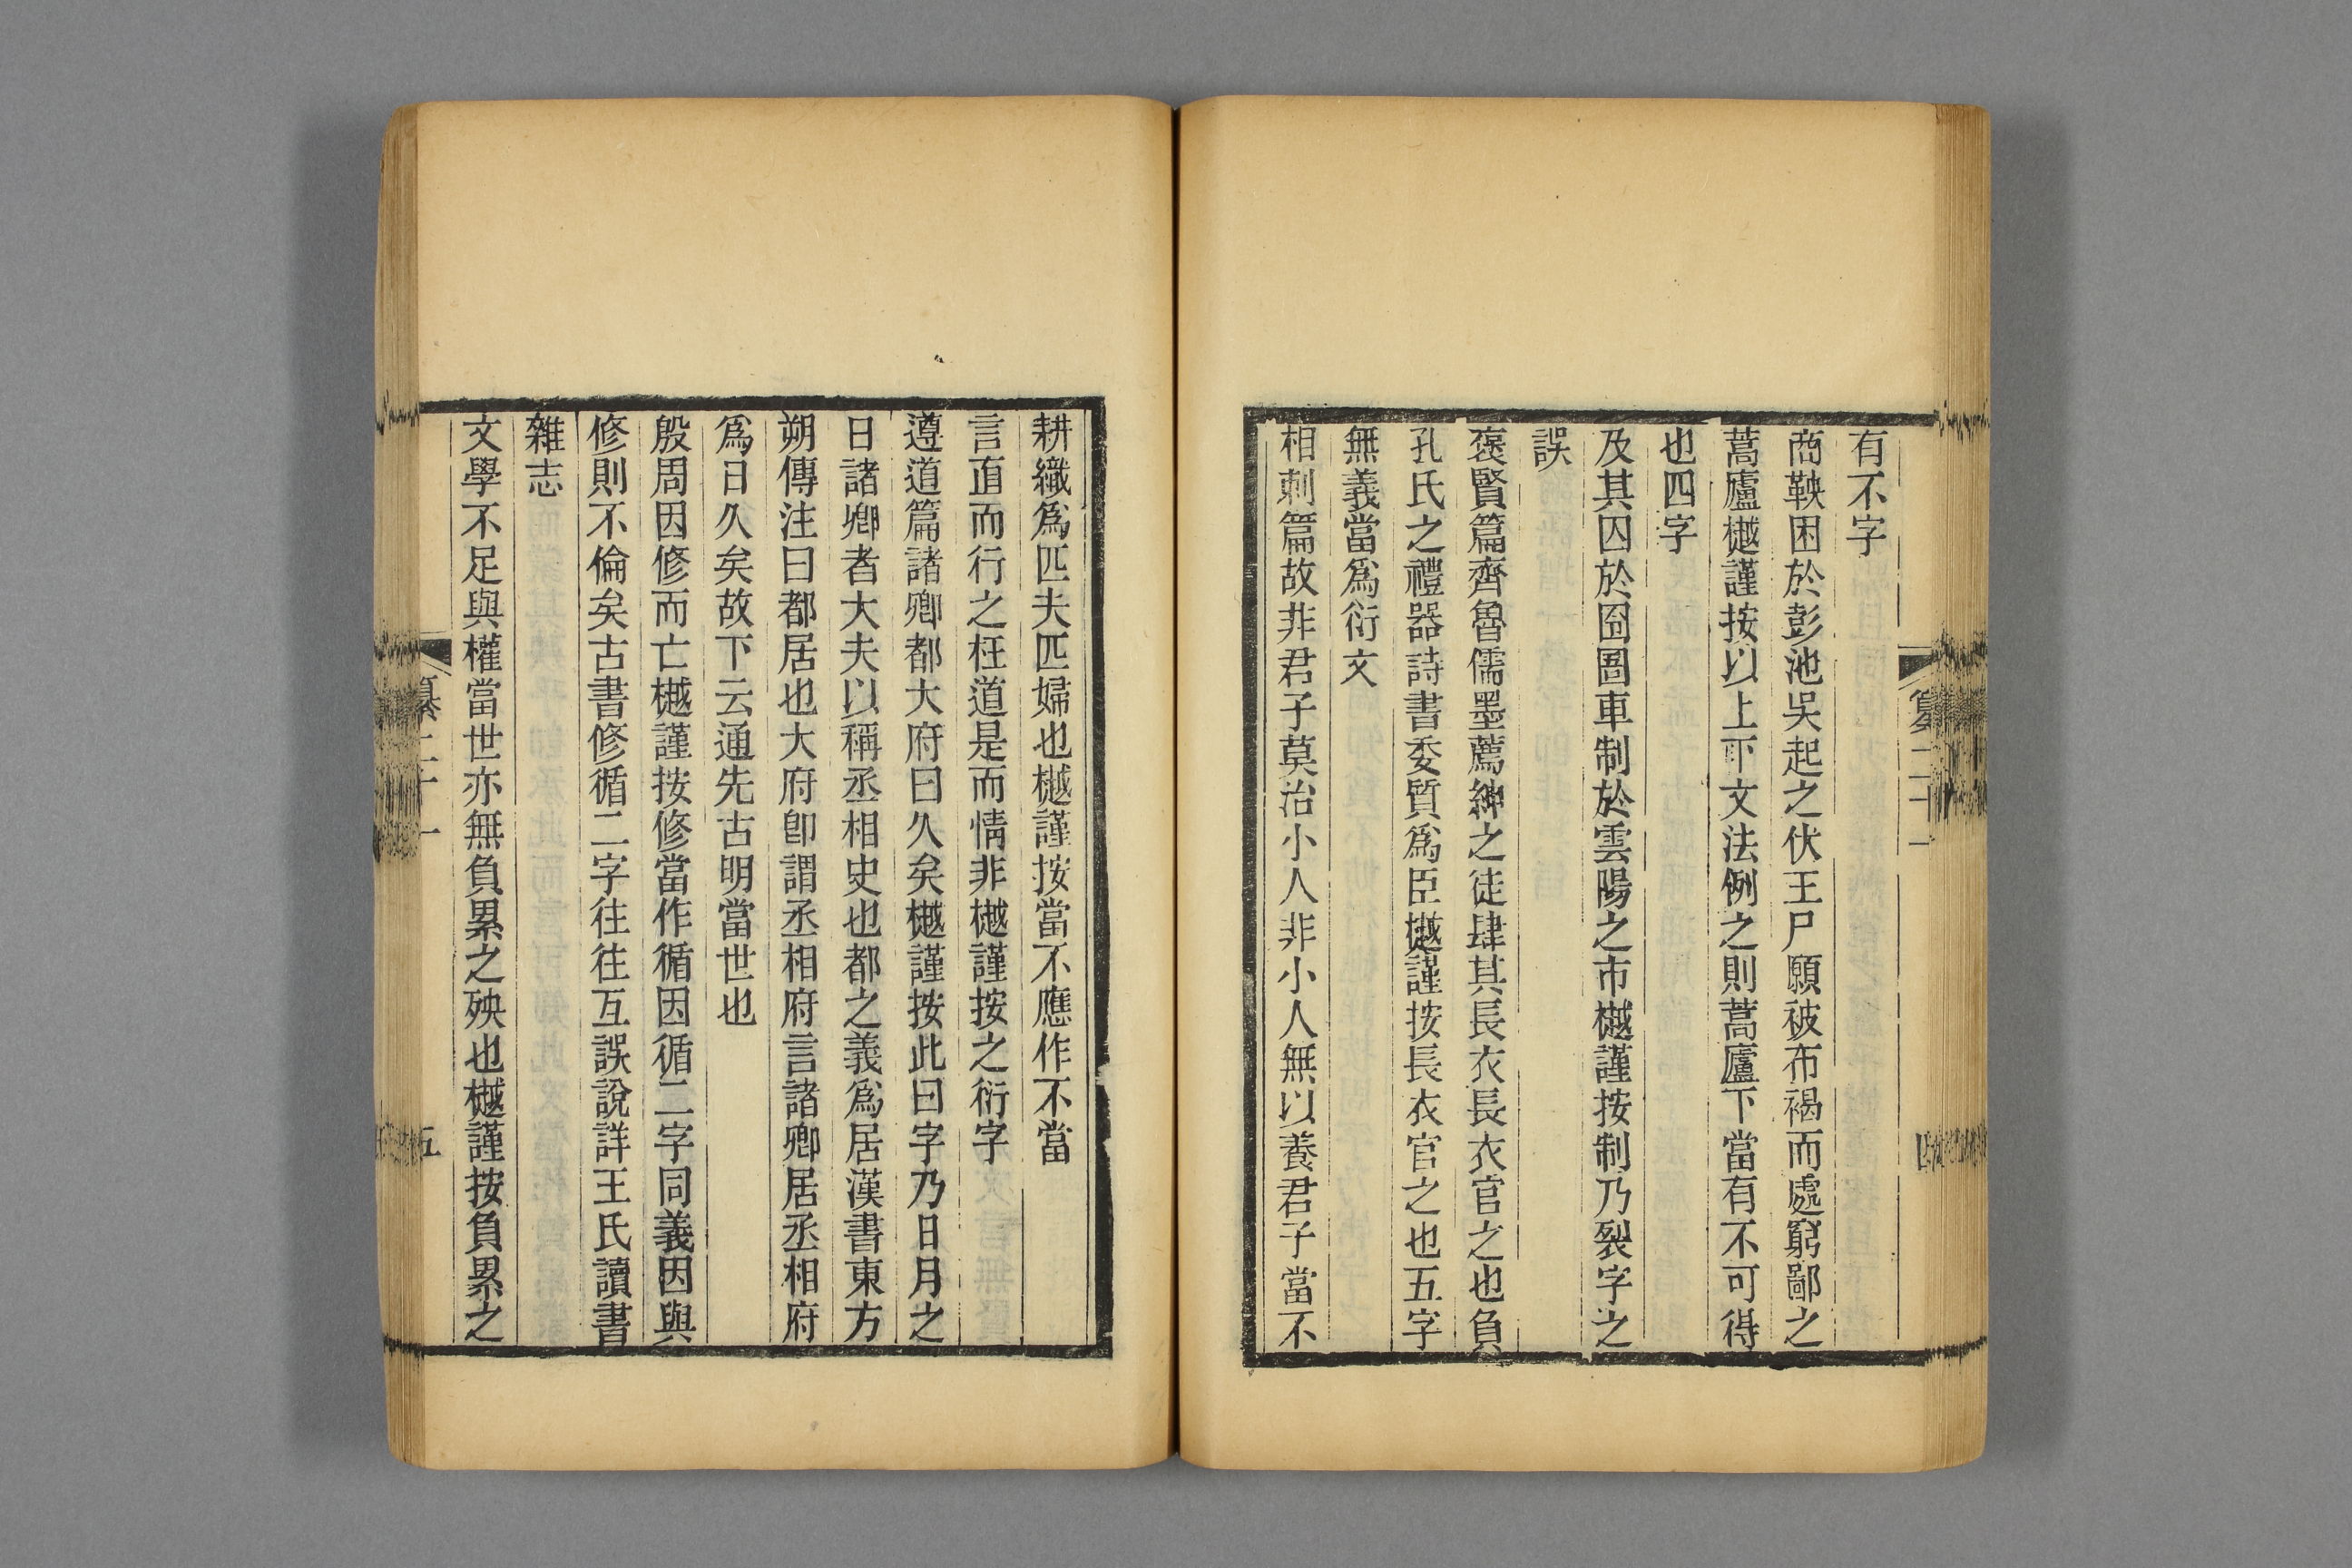 有不字
商鞅困於彭池吳起之伏王尸願被布褐而處窮鄙之
蒿廬樾謹按以上下文法例之則蒿廬下當有不可得
也四字
及其囚於囹圄車制於雲陽之市樾謹按制乃裂字之
誤
褒賢篇齊魯儒墨薦紳之徒肆其長衣長衣官之也負
孔氏之禮器詩書委質爲臣樾謹按長衣官之也五字
無義當爲衍文
相刺篇故非君子莫治小人非小人無以養君子當不
耕織爲匹夫匹婦也樾謹按當不應作不當
言直而行之枉道是而情非樾謹按之衍字
遵道篇諸卿都大府曰久矣樾謹按此曰字乃日月之
日諸卿者大夫以稱丞相史也都之義爲居漢書東方
朔傳注曰都居也大府卽謂丞相府言諸卿居丞相府
爲日久矣故下云通先古明當世也
殷周因修而亡樾謹按修當作循因循二字同義因與
修則不倫矣古書修循二字往往互誤說詳王氏讀書
雜志
文學不足與權當世亦無負累之殃也樾謹按負累之
纂二十一
五
纂二十一
四